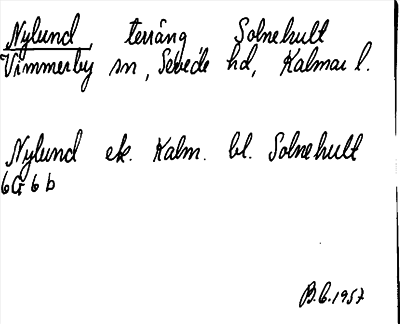 Nylund, terräng Solnehult
Vimmerby sn, Sevede hd, Kalmar l.
Nylund ek. Kalm. bl. Solnehult
6G 6 b
B.C. 1957